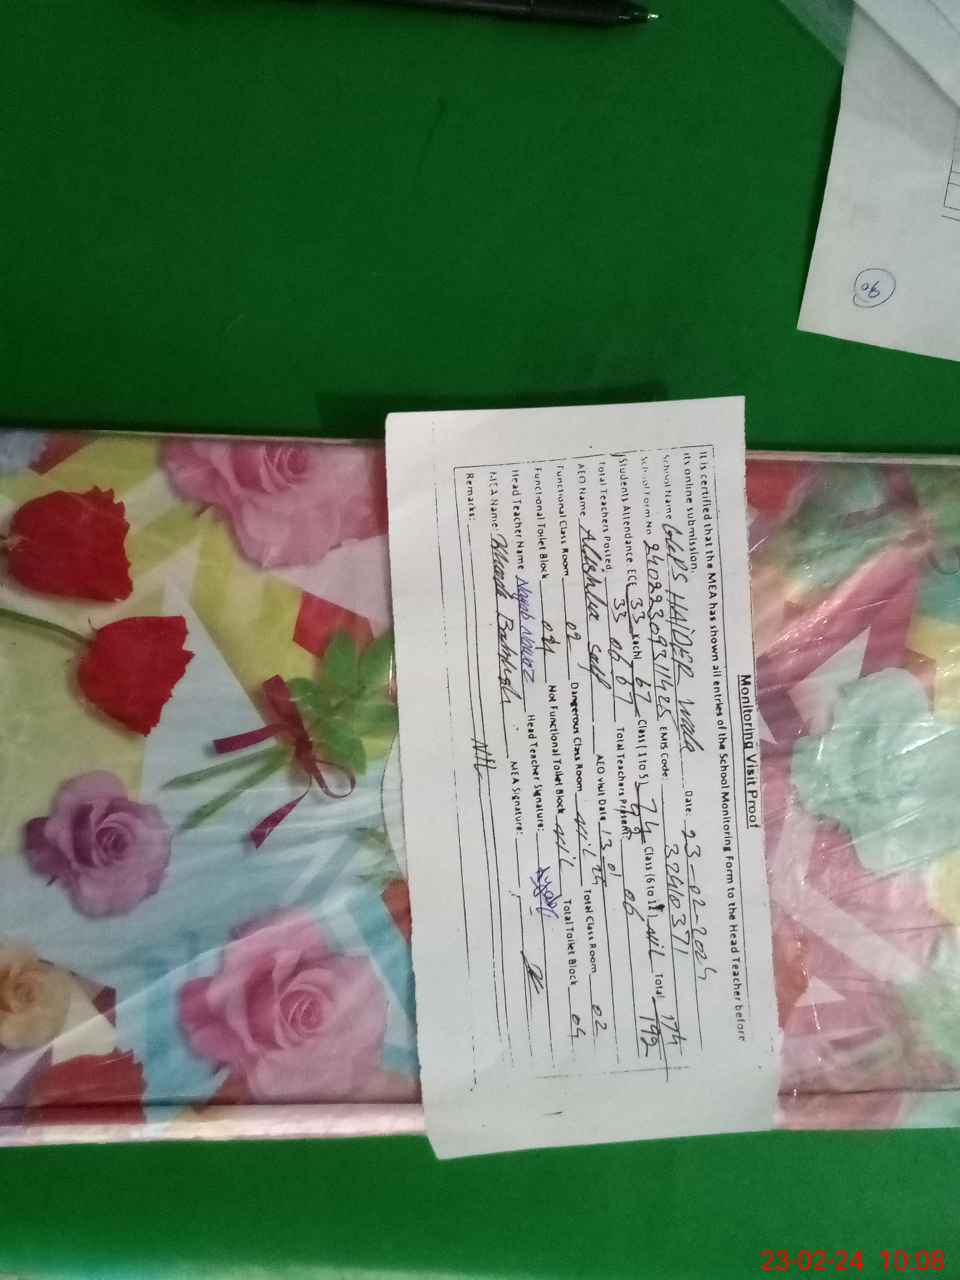 Monitoring Visit Proof
It is certified that the MEA has shown all entries of the School Monitoring Form to the Head Teacher before
its online submission.
School Name GGPS HAIDER Wala Date: 23-02-2024
School Form No 24022309311425 EMIS Code: 32410371
Students Attendance ECE 33 Kachi 67 Class (1 to 5) 74 Class (6 to ) Nil Total 174
33 67 92 192
Total Teachers Posted 06 Total Teachers Present: 06
AEO Name Alishba Saif AEO Visit Date 13 01 24
Functional Class Room 02 Dangerous Class Room Nil Total Class Room 02
Functional Toilet Block 04 Not Functional Toilet Block Nil Total Toilet Block 04
Head Teacher Name Head Teacher Signature:
MEA Name: MEA Signature:
Remarks: Nil
90
23-02-24 10:08